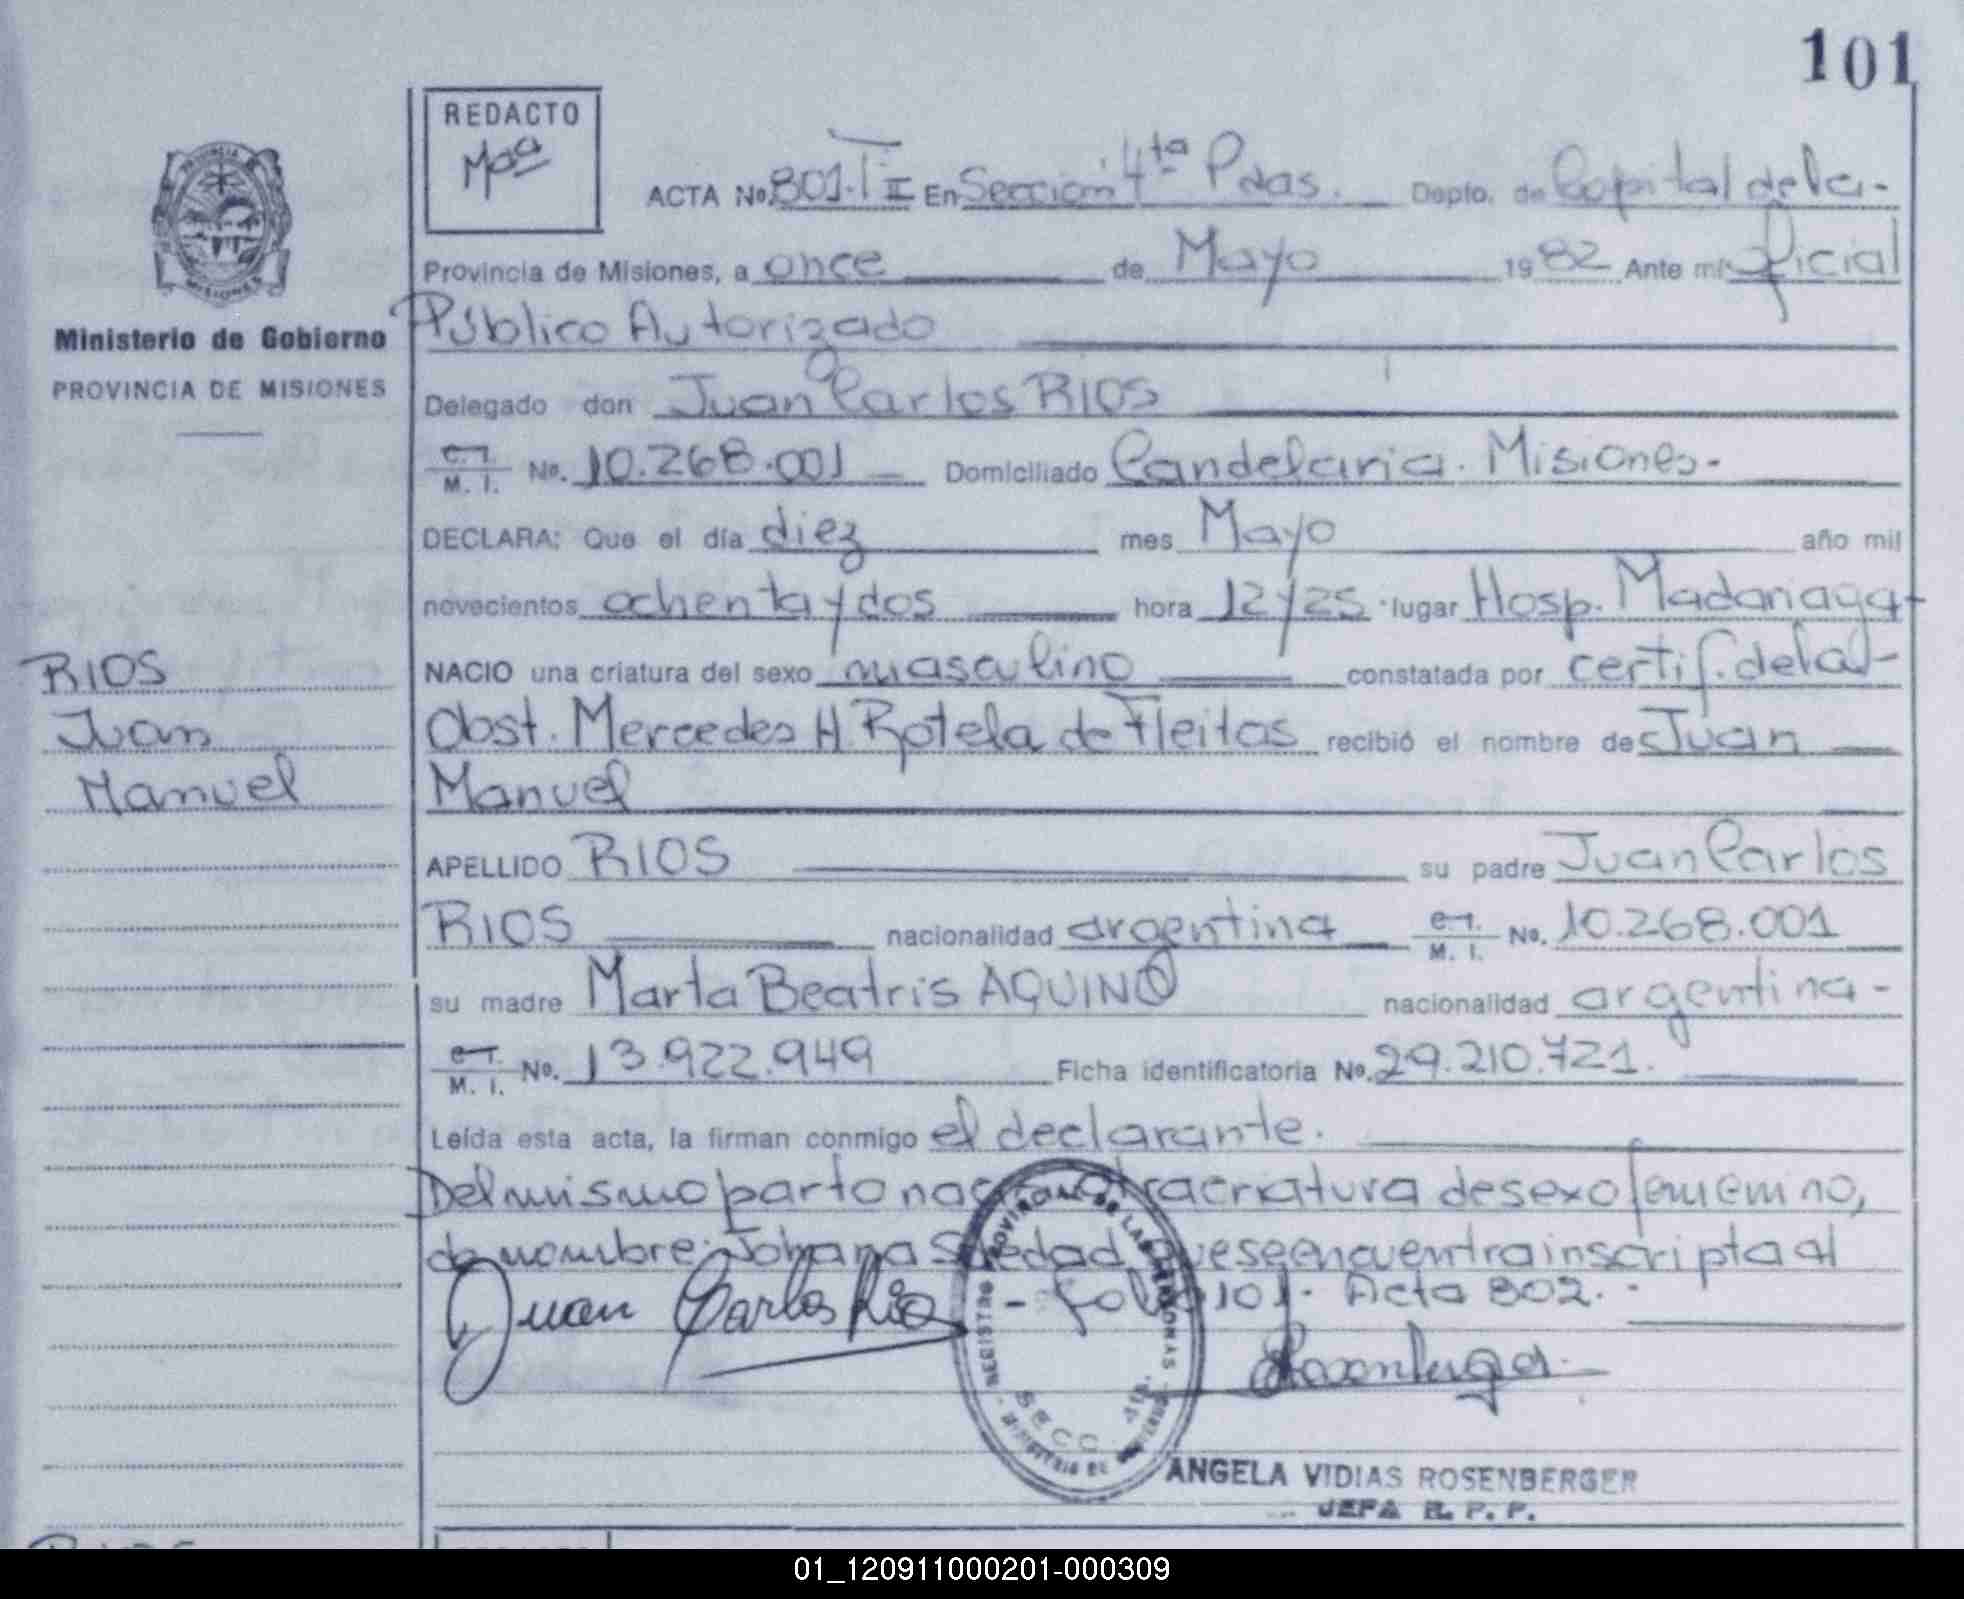 101
REDACTO
Mªª
ACTA Nº 801.T II En Sección 4ta Pdas. Depto. de Capital de la
Provincia de Misiones, a once de Mayo 1982 Ante mi Oficial
Público Autorizado
Delegado don Juan Carlos RIOS
C.I. M. I. No. 10.268.001 Domiciliado Candelaria. Misiones.
DECLARA: Que el día diez mes Mayo año mil
novecientos ochenta y dos hora 12 y 25 lugar Hosp. Madariaga
NACIO una criatura del sexo masculino constatada por certif. de la
Obst. Mercedes H. Rotela de Fleitas recibió el nombre de Juan
Manuel
APELLIDO RIOS su padre Juan Carlos
RIOS nacionalidad argentina C.I. M. I. No. 10.268.001
su madre Marta Beatris AQUINO nacionalidad argentina-
C.I. M. I. No. 13.922.949 Ficha identificatoria No. 29.210.721.
Leída esta acta, la firman conmigo el declarante.
Del mismo parto nació otra criatura de sexo femenino,
de nombre: Johana Soledad, que se encuentra inscripta al
- folio 101. Acta 802. -
Juan Carlos Rios
Rosenberger
REGISTRO PROVINCIAL DE LAS PERSONAS
SECC. 4ta.
MINISTERIO DE GOBIERNO
ANGELA VIDIAS ROSENBERGER
JEFA R. P. P.
PROVINCIA
MISIONES
Ministerio de Gobierno
PROVINCIA DE MISIONES
RIOS
Juan
Manuel
RIOS
01_120911000201-000309